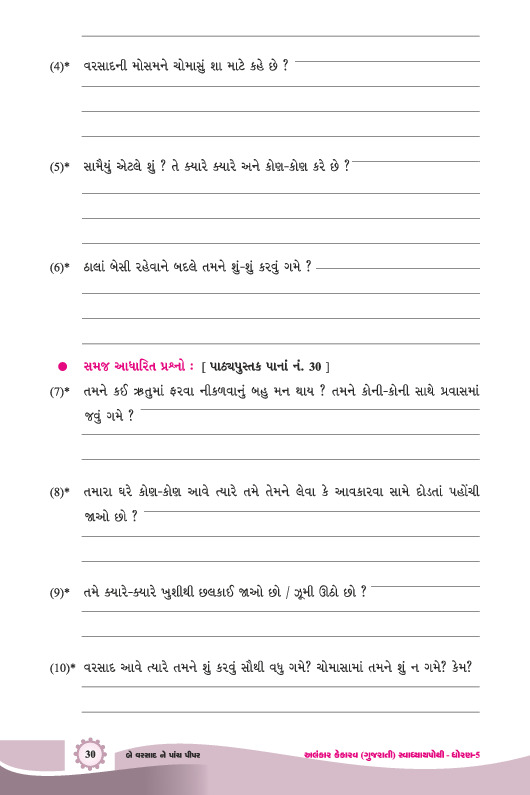 (4)* વરસાદની મોસમને ચોમાસું શા માટે કહે છે ?
(5)* સામૈયું એટલે શું ? તે ક્યારે ક્યારે અને કોણ-કોણ કરે છે ?
(6)* ઠાલાં બેસી રહેવાને બદલે તમને શું-શું કરવું ગમે ?
● સમજ આધારિત પ્રશ્નો : [ પાઠ્યપુસ્તક પાનાં નં. 30 ]
(7)* તમને કઈ ઋતુમાં ફરવા નીકળવાનું બહુ મન થાય ? તમને કોની-કોની સાથે પ્રવાસમાં
જવું ગમે ?
(8)* તમારા ઘરે કોણ-કોણ આવે ત્યારે તમે તેમને લેવા કે આવકારવા સામે દોડતાં પહોંચી
જાઓ છો ?
(9)* તમે ક્યારે-ક્યારે ખુશીથી છલકાઈ જાઓ છો / ઝૂમી ઊઠો છો ?
(10)* વરસાદ આવે ત્યારે તમને શું કરવું સૌથી વધુ ગમે? ચોમાસામાં તમને શું ન ગમે? કેમ?
30 બે વરસાદ ને પાંચ પીપર અલંકાર કેકારવ (ગુજરાતી) સ્વાધ્યાયપોથી - ધોરણ-5